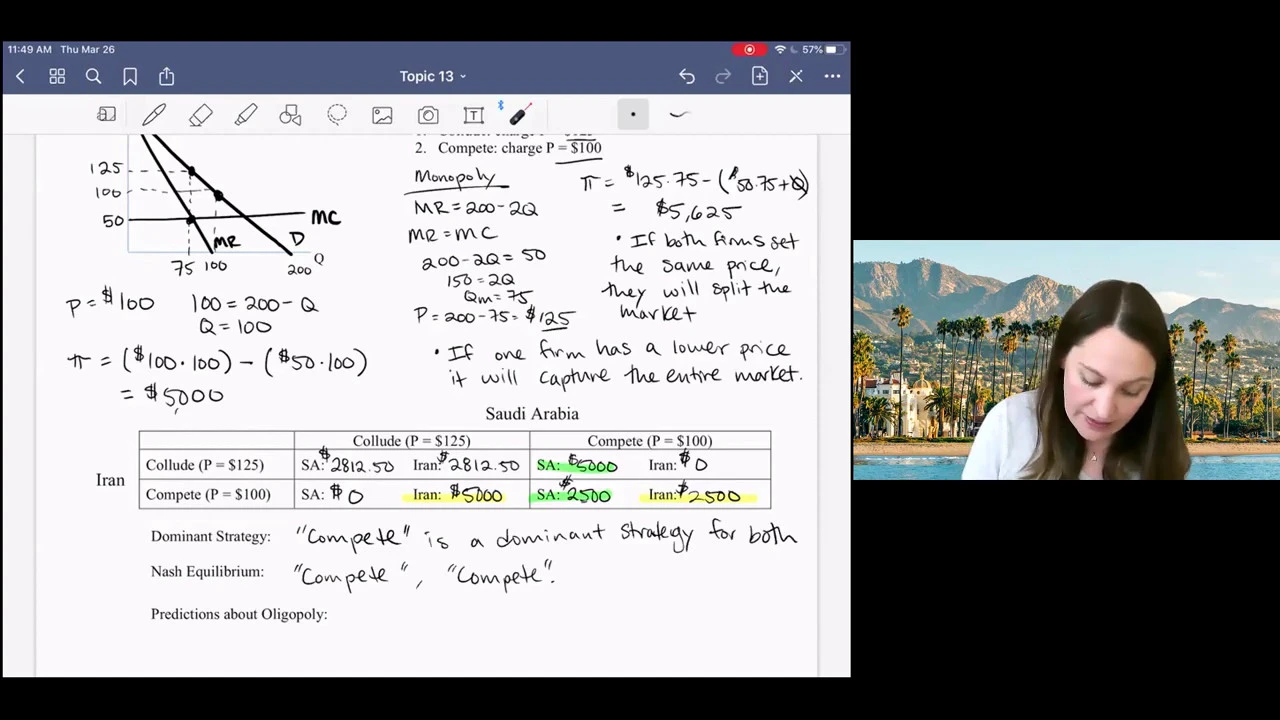 11:49 AM Thu Mar 26
57%
Topic 13
T
2. Compete: charge P = $100
125
100
50
MC
MR
D
75 100 200 Q
P = $100 100 = 200 - Q
Q = 100
π = ($100·100) - ($50·100)
= $5,000
Monopoly
MR = 200-2Q
MR = MC
200-2Q = 50
150 = 2Q
Qm = 75
P = 200-75 = $125
π = $125·75 - ($50·75+0)
= $5,625
• If both firms set
the same price,
they will split the
market
• If one firm has a lower price
it will capture the entire market.
Saudi Arabia
Collude (P = $125) Compete (P = $100)
Iran
Collude (P = $125) SA: $2812.50 Iran: $2812.50 SA: $5000 Iran: $0
Compete (P = $100) SA: $0 Iran: $5000 SA: $2500 Iran: $2500
Dominant Strategy: "Compete" is a dominant strategy for both
Nash Equilibrium: "Compete", "Compete".
Predictions about Oligopoly: